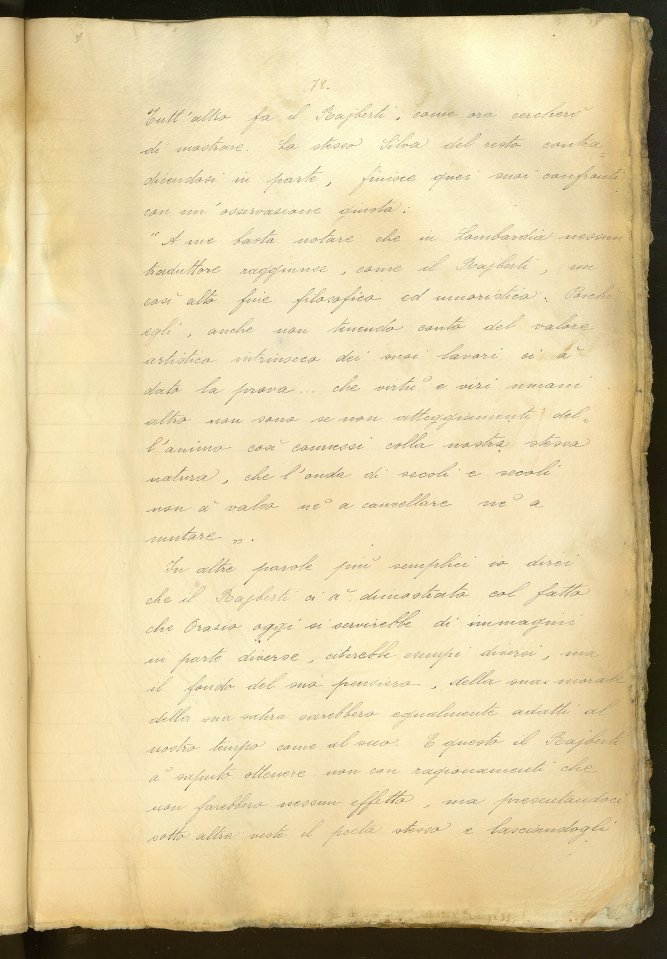 78.
Tutt'altro fa il Rajberti, come ora cercherò
di mostrare. Lo stesso Silva del resto contra-
dicendosi in parte, finisce quei suoi confronti
con un'osservazione giusta:
"A me basta notare che in Lombardia nessun
traduttore raggiunse, come il Rajberti, un
così alto fine filosofico ed umoristico. Poichè
egli, anche non tenendo conto del valore
artistico intrinseco dei suoi lavori ci à
dato la prova... che virtù e vizi umani
altro non sono se non atteggiamenti del-
l'animo così connessi colla nostra stessa
natura, che l'onda di secoli e secoli
non à valso nè a cancellare nè a
mutare".
In altre parole più semplici io direi
che il Rajberti ci à dimostrato col fatto
che Orazio oggi si servirebbe di immagini
in parte diverse, citerebbe esempi diversi, ma
il fondo del suo pensiero, della sua morale
della sua satira sarebbero egualmente adatti al
nostro tempo come al suo. E questo il Rajberti
à saputo ottenere non con ragionamenti che
non farebbero nessun effetto, ma presentandoci
sotto altra veste il poeta stesso e lasciandogli